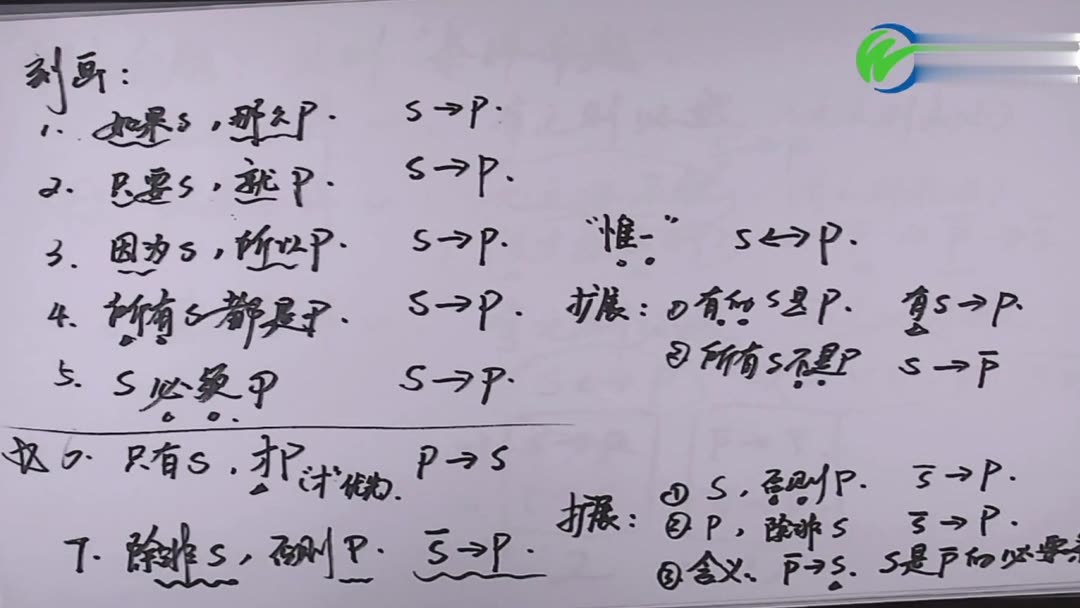 刻画：
1. 如果S，那么P. S→P.
2. 只要S，就P. S→P.
3. 因为S，所以P. S→P.
"惟一" S↔P.
4. 所有S都是P. S→P.
扩展：①有的S是P. 有S→P.
②所有S不是P S→P̄
5. S必须P S→P.
6. 只有S，才P "才"优先. P→S
7. 除非S，否则P. S̄→P.
扩展：① S，否则P. S̄→P.
② P，除非S S̄→P.
③含义. P̄→S. S是P̄的必要